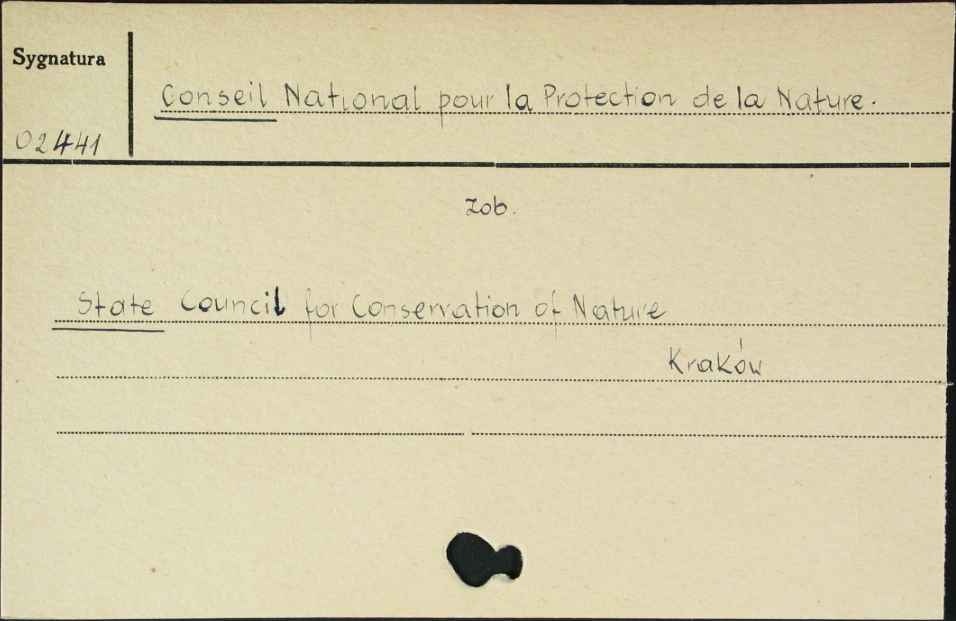 Sygnatura
Conseil National pour la Protection de la Nature.
02441
zob.
State Council for Conservation of Nature
Kraków